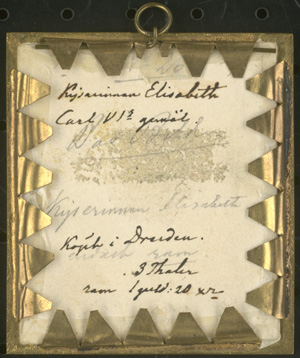 Kÿserinnan Elisabeth
Carl VI
Kÿserinnan Elisabeth
Köpt i Dresden.
ram
3 Thaler
ram 1 guld: 20 xr